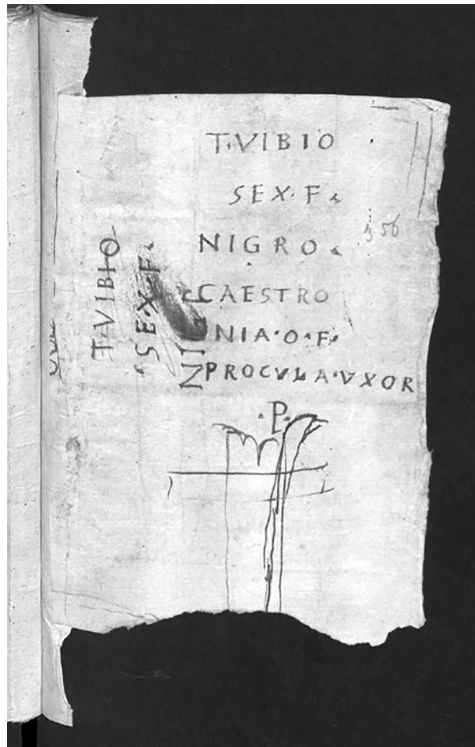 T·VIBIO
SEX·F·
NIGRO·
CAESTRO
NIA·O·F·
PROCVLA·VXOR
·P·
T·VIBIO
·SEX·F·
NIG